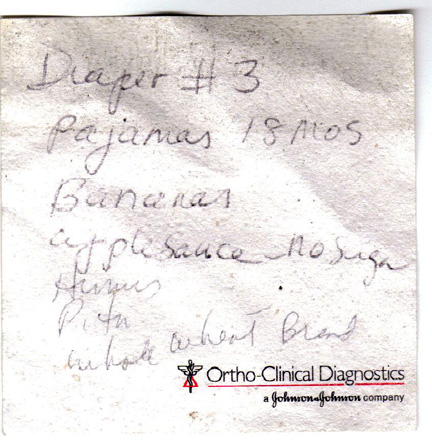 Diaper # 3
Pajamas 18 mos
Bananas
applesauce no sugar
Humus
Pita
whole wheat Bread
Ortho-Clinical Diagnostics
a Johnson & Johnson company